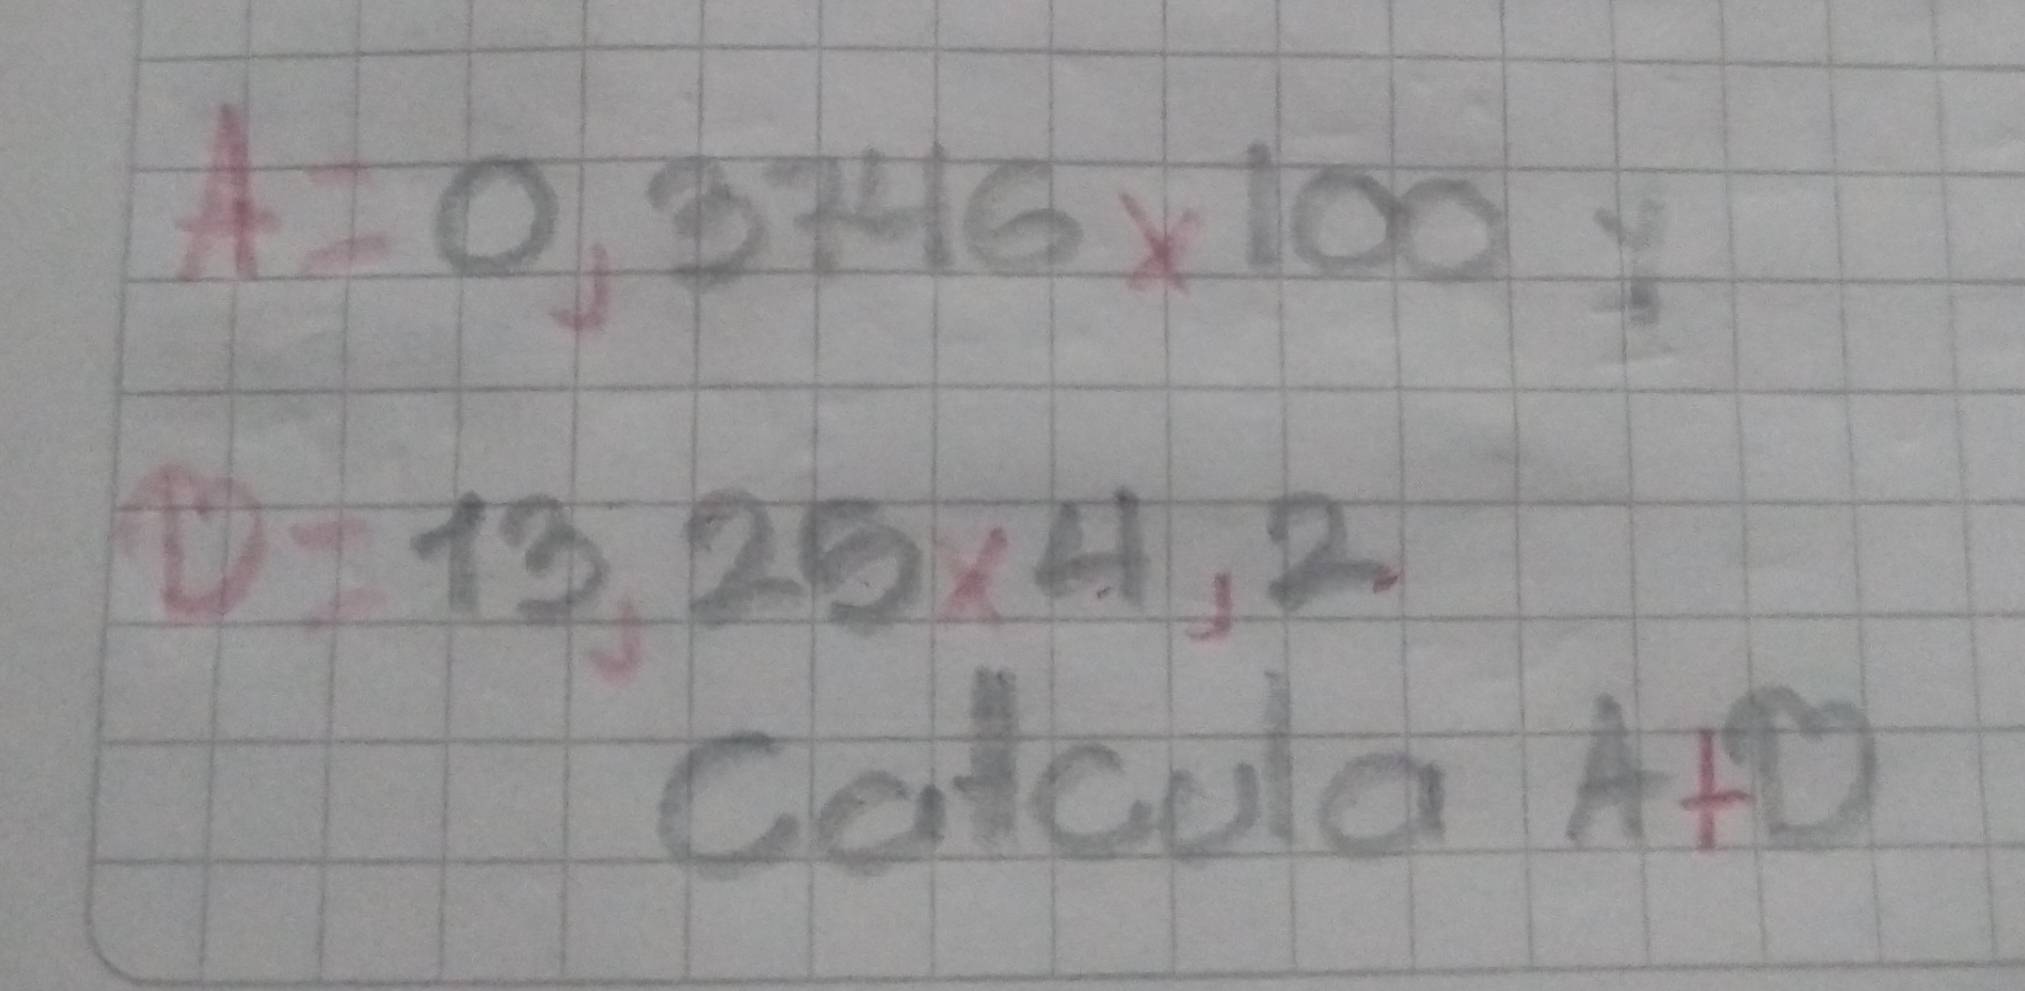 A = 0,3746 x 100 y
D = 13,25 x 4,2
Calcula A+D